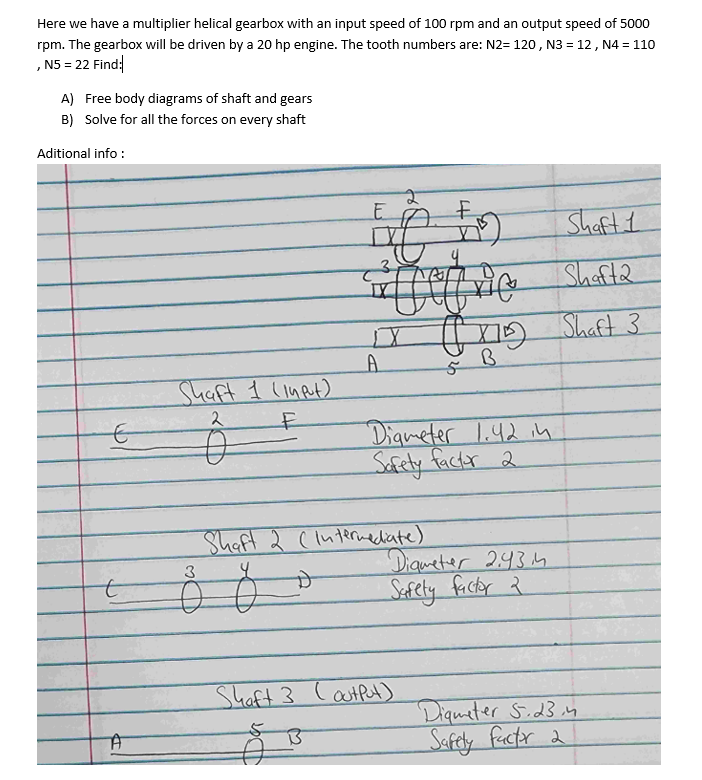 Here we have a multiplier helical gearbox with an input speed of 100 rpm and an output speed of 5000
rpm. The gearbox will be driven by a 20 hp engine. The tooth numbers are: N2= 120 , N3 = 12 , N4 = 110
, N5 = 22 Find:
A) Free body diagrams of shaft and gears
B) Solve for all the forces on every shaft
Aditional info :
E 2 F Shaft 1
C 3 4 D Shaft2
Shaft 3
A 5 B
Shaft 1 (input)
E 2 F
Diameter 1.42 in
Safety factor 2
Shaft 2 (Intermediate)
Diameter 2.43 in
C 3 4 D
Safety factor 2
Shaft 3 (output)
Diameter 5.23 in
A 5 B
Safety factor 2